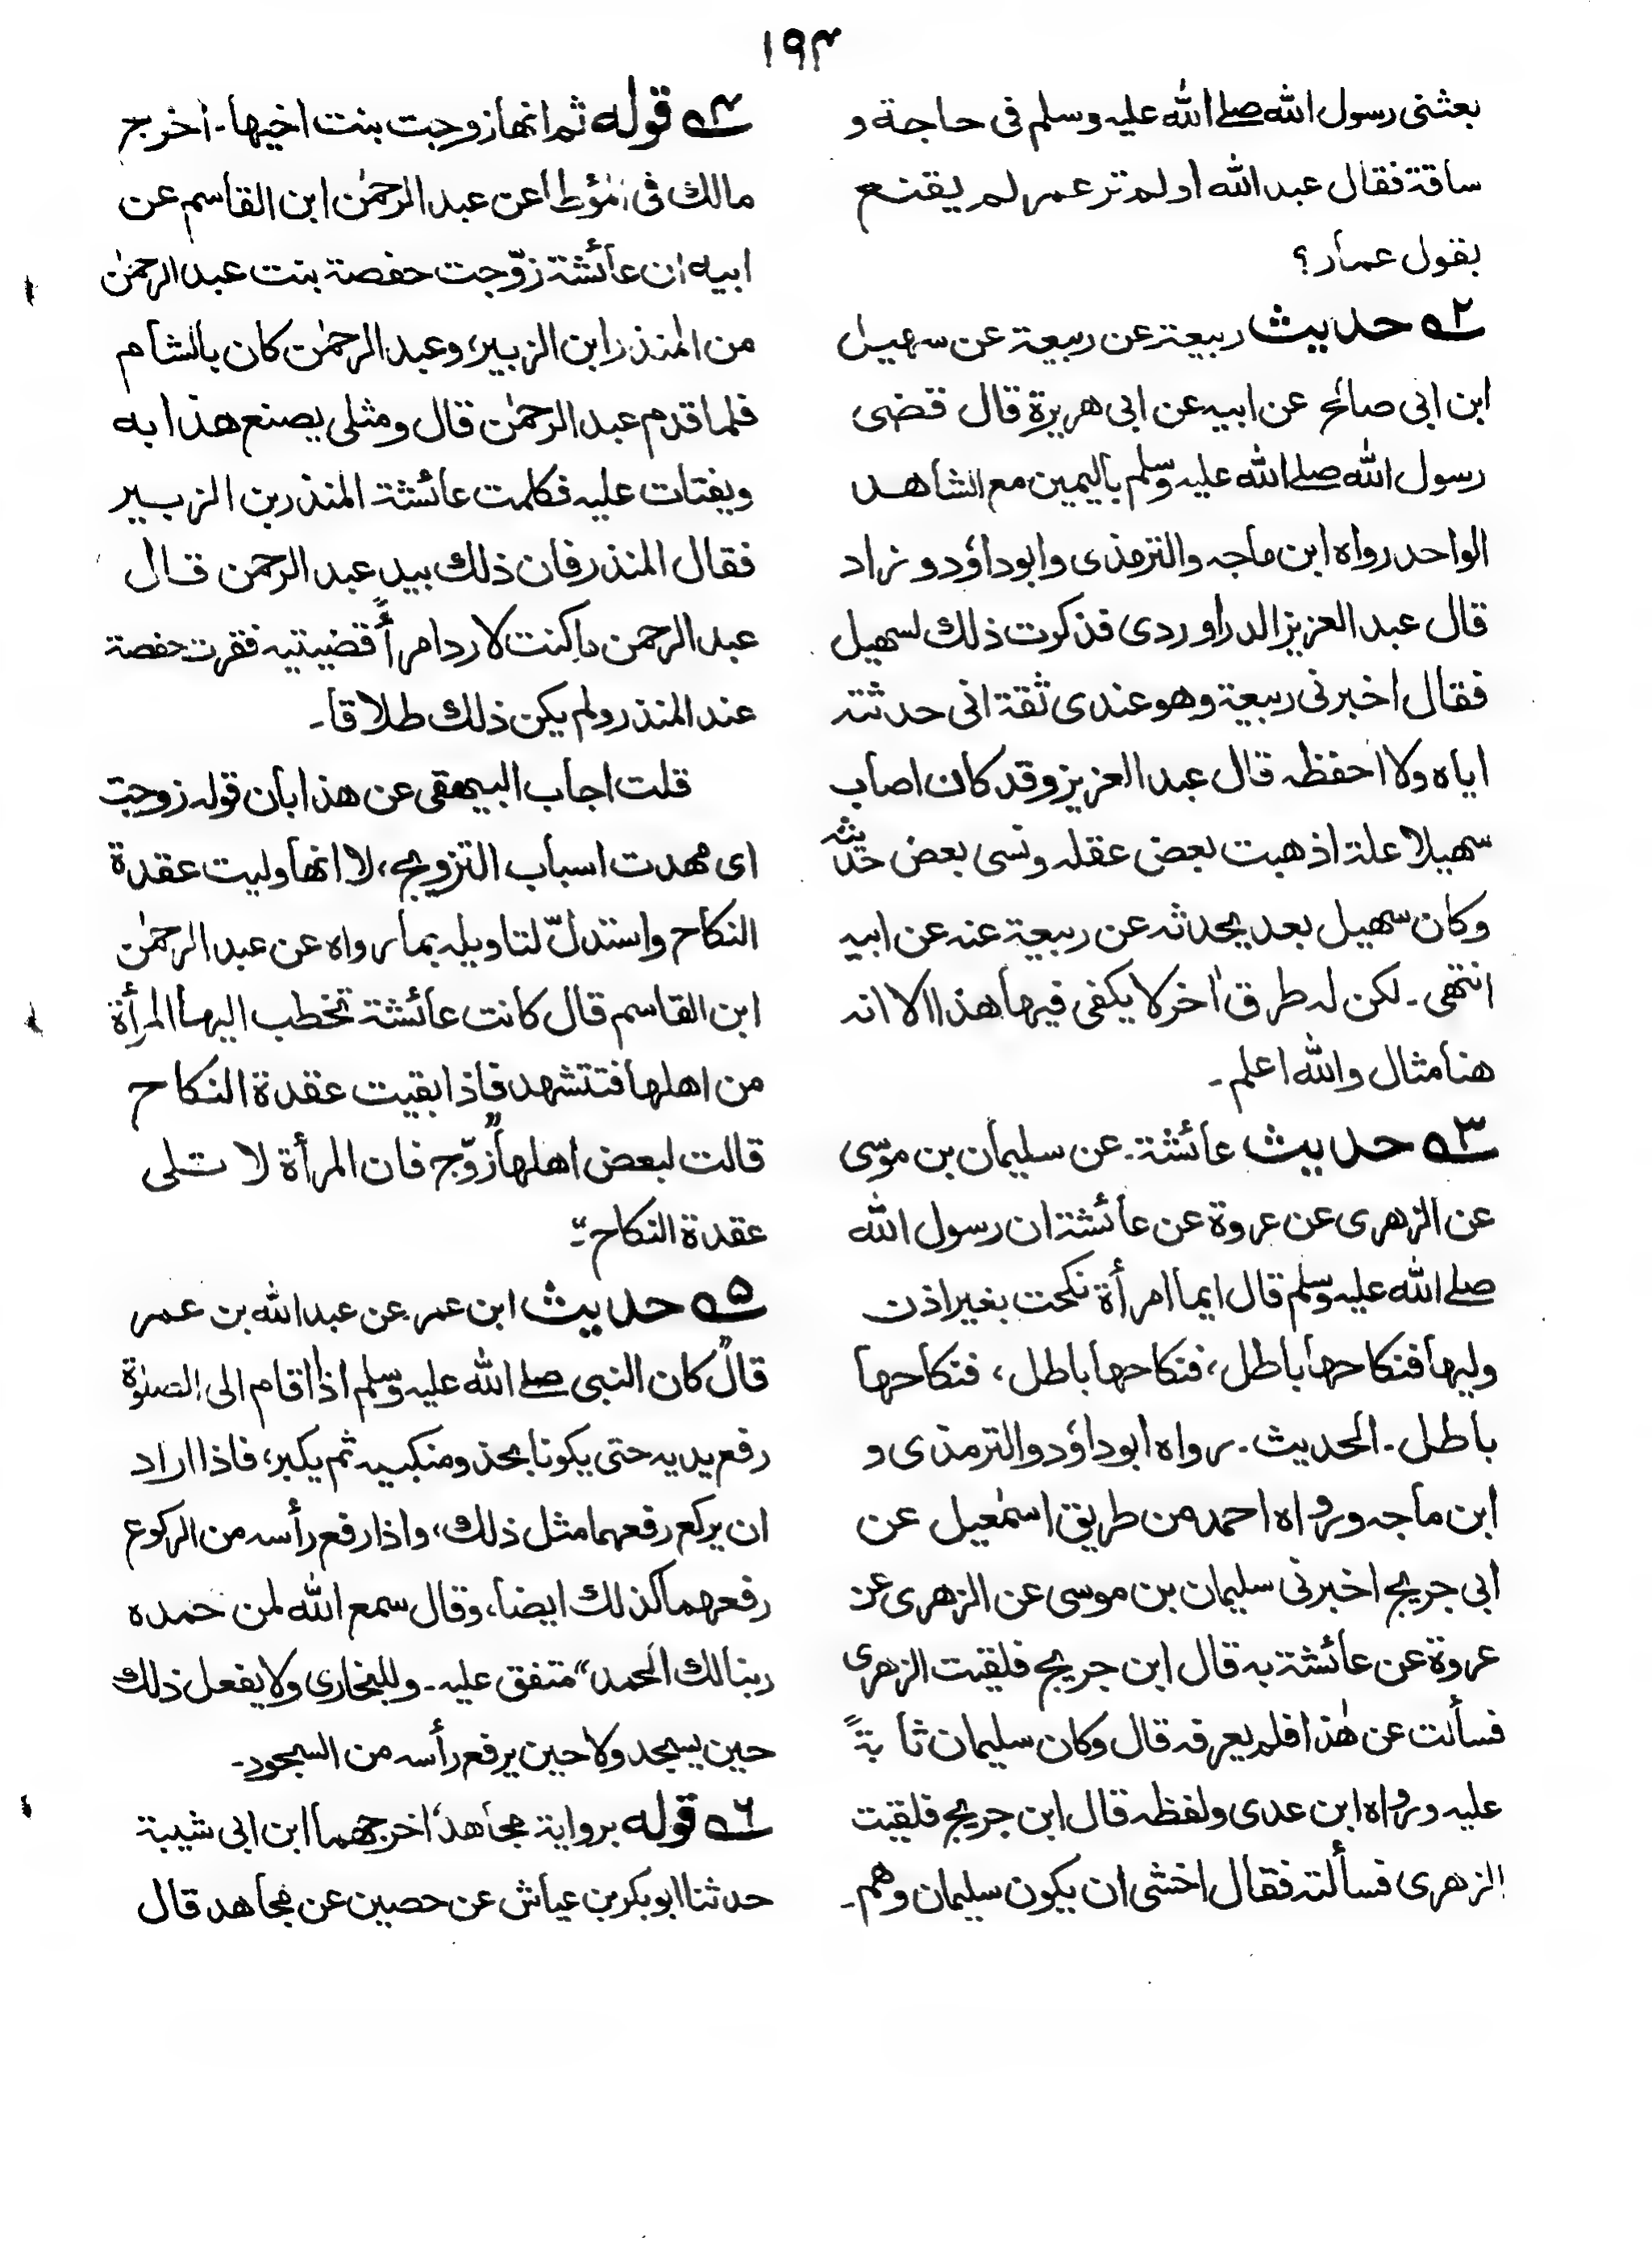 ١٩٤
بعثنى رسول الله صلے الله عليه وسلم فى حاجة و
ساقة فقال عبد الله او لم تر عمر لم يقنع
بقول عمار؟
٢ حديث ربيعة عن ربيعة عن سهيل
ابن ابى صالح عن ابيه عن ابى هريرة قال قضى
رسول الله صلے الله عليه وسلم باليمين مع الشاهد
الواحد رواه ابن ماجه والترمذى وابوداؤد و زاد
قال عبد العزيز الدراوردى فذكرت ذلك لسهيل
فقال اخبرنى ربيعة وهو عندى ثقة انى حدثته
اياه ولا احفظه قال عبد العزيز وقد كان اصاب
سهيلا علة اذهبت بعض عقله ونسى بعض حديثه
وكان سهيل بعد يحدثه عن ربيعة عنه عن ابيه
انتهى ـ لكن له طرق اٰخر لا يكفى فيها هذا الا انه
هنا مثال والله اعلم ـ
٣ حديث عائشة ـ عن سليمان بن موسى
عن الزهرى عن عروة عن عائشة ان رسول الله
صلے الله عليه وسلم قال ايما امرأة نكحت بغير اذن
وليها فنكاحها باطل، فنكاحها باطل، فنكاحها
باطل ـ الحديث ـ رواه ابوداؤد والترمذى و
ابن ماجه ورواه احمد من طريق اسمٰعيل عن
ابى جريج اخبرنى سليمان بن موسى عن الزهرى عن
عروة عن عائشة به قال ابن جريج فلقيت الزهرى
فسألت عن هٰذا فلم يعرفه قال وكان سليمان
عليه ورواه ابن عدى ولفظه قال ابن جريج فلقيت
الزهرى فسألته فقال اخشى ان يكون سليمان وهم ـ
٤ قوله ثم انها زوجت بنت اخيها ـ اخرج
مالك فى المؤطا عن عبد الرحمٰن ابن القاسم عن
ابيه ان عائشة زوّجت حفصة بنت عبد الرحمٰن
من المنذر ابن الزبير، وعبد الرحمٰن كان بالشام
فلما قدم عبد الرحمٰن قال ومثلى يصنع هذا به
ويفتات عليه فكلمت عائشة المنذر بن الزبير
فقال المنذر فان ذلك بيد عبد الرحمن قال
عبد الرحمن ما كنت لارد امراً قضيتيه فقرت حفصة
عند المنذر ولم يكن ذلك طلاقا ـ
قلت اجاب البيهقى عن هذا بأن قوله زوجت
اى مهدت اسباب التزويج، لا انها وليت عقدة
النكاح واستدلّ لتاويله بما رواه عن عبد الرحمٰن
ابن القاسم قال كانت عائشة تخطب اليها المرأة
من اهلها فتتشهد فاذا بقيت عقدة النكاح
قالت لبعض اهلها "زوّج فان المرأة لا تلى
عقدة النكاح" ـ
٥ حديث ابن عمر عن عبد الله بن عمر
قال "كان النبى صلے الله عليه وسلم اذا اقام الى الصلوٰة
رفع يديه حتى يكونا بحذو منكبيه ثم يكبر، فاذا اراد
ان يركع رفعهما مثل ذلك، واذا رفع رأسه من الركوع
رفعهما كذلك ايضا، وقال سمع الله لمن حمده
ربنا لك الحمد" متفق عليه ـ وللبخارى ولا يفعل ذلك
حين يسجد ولا حين يرفع رأسه من السجود ـ
٦ قوله برواية مجاهد اخرجهما ابن ابى شيبة
حدثنا ابوبكر بن عياش عن حصين عن مجاهد قال